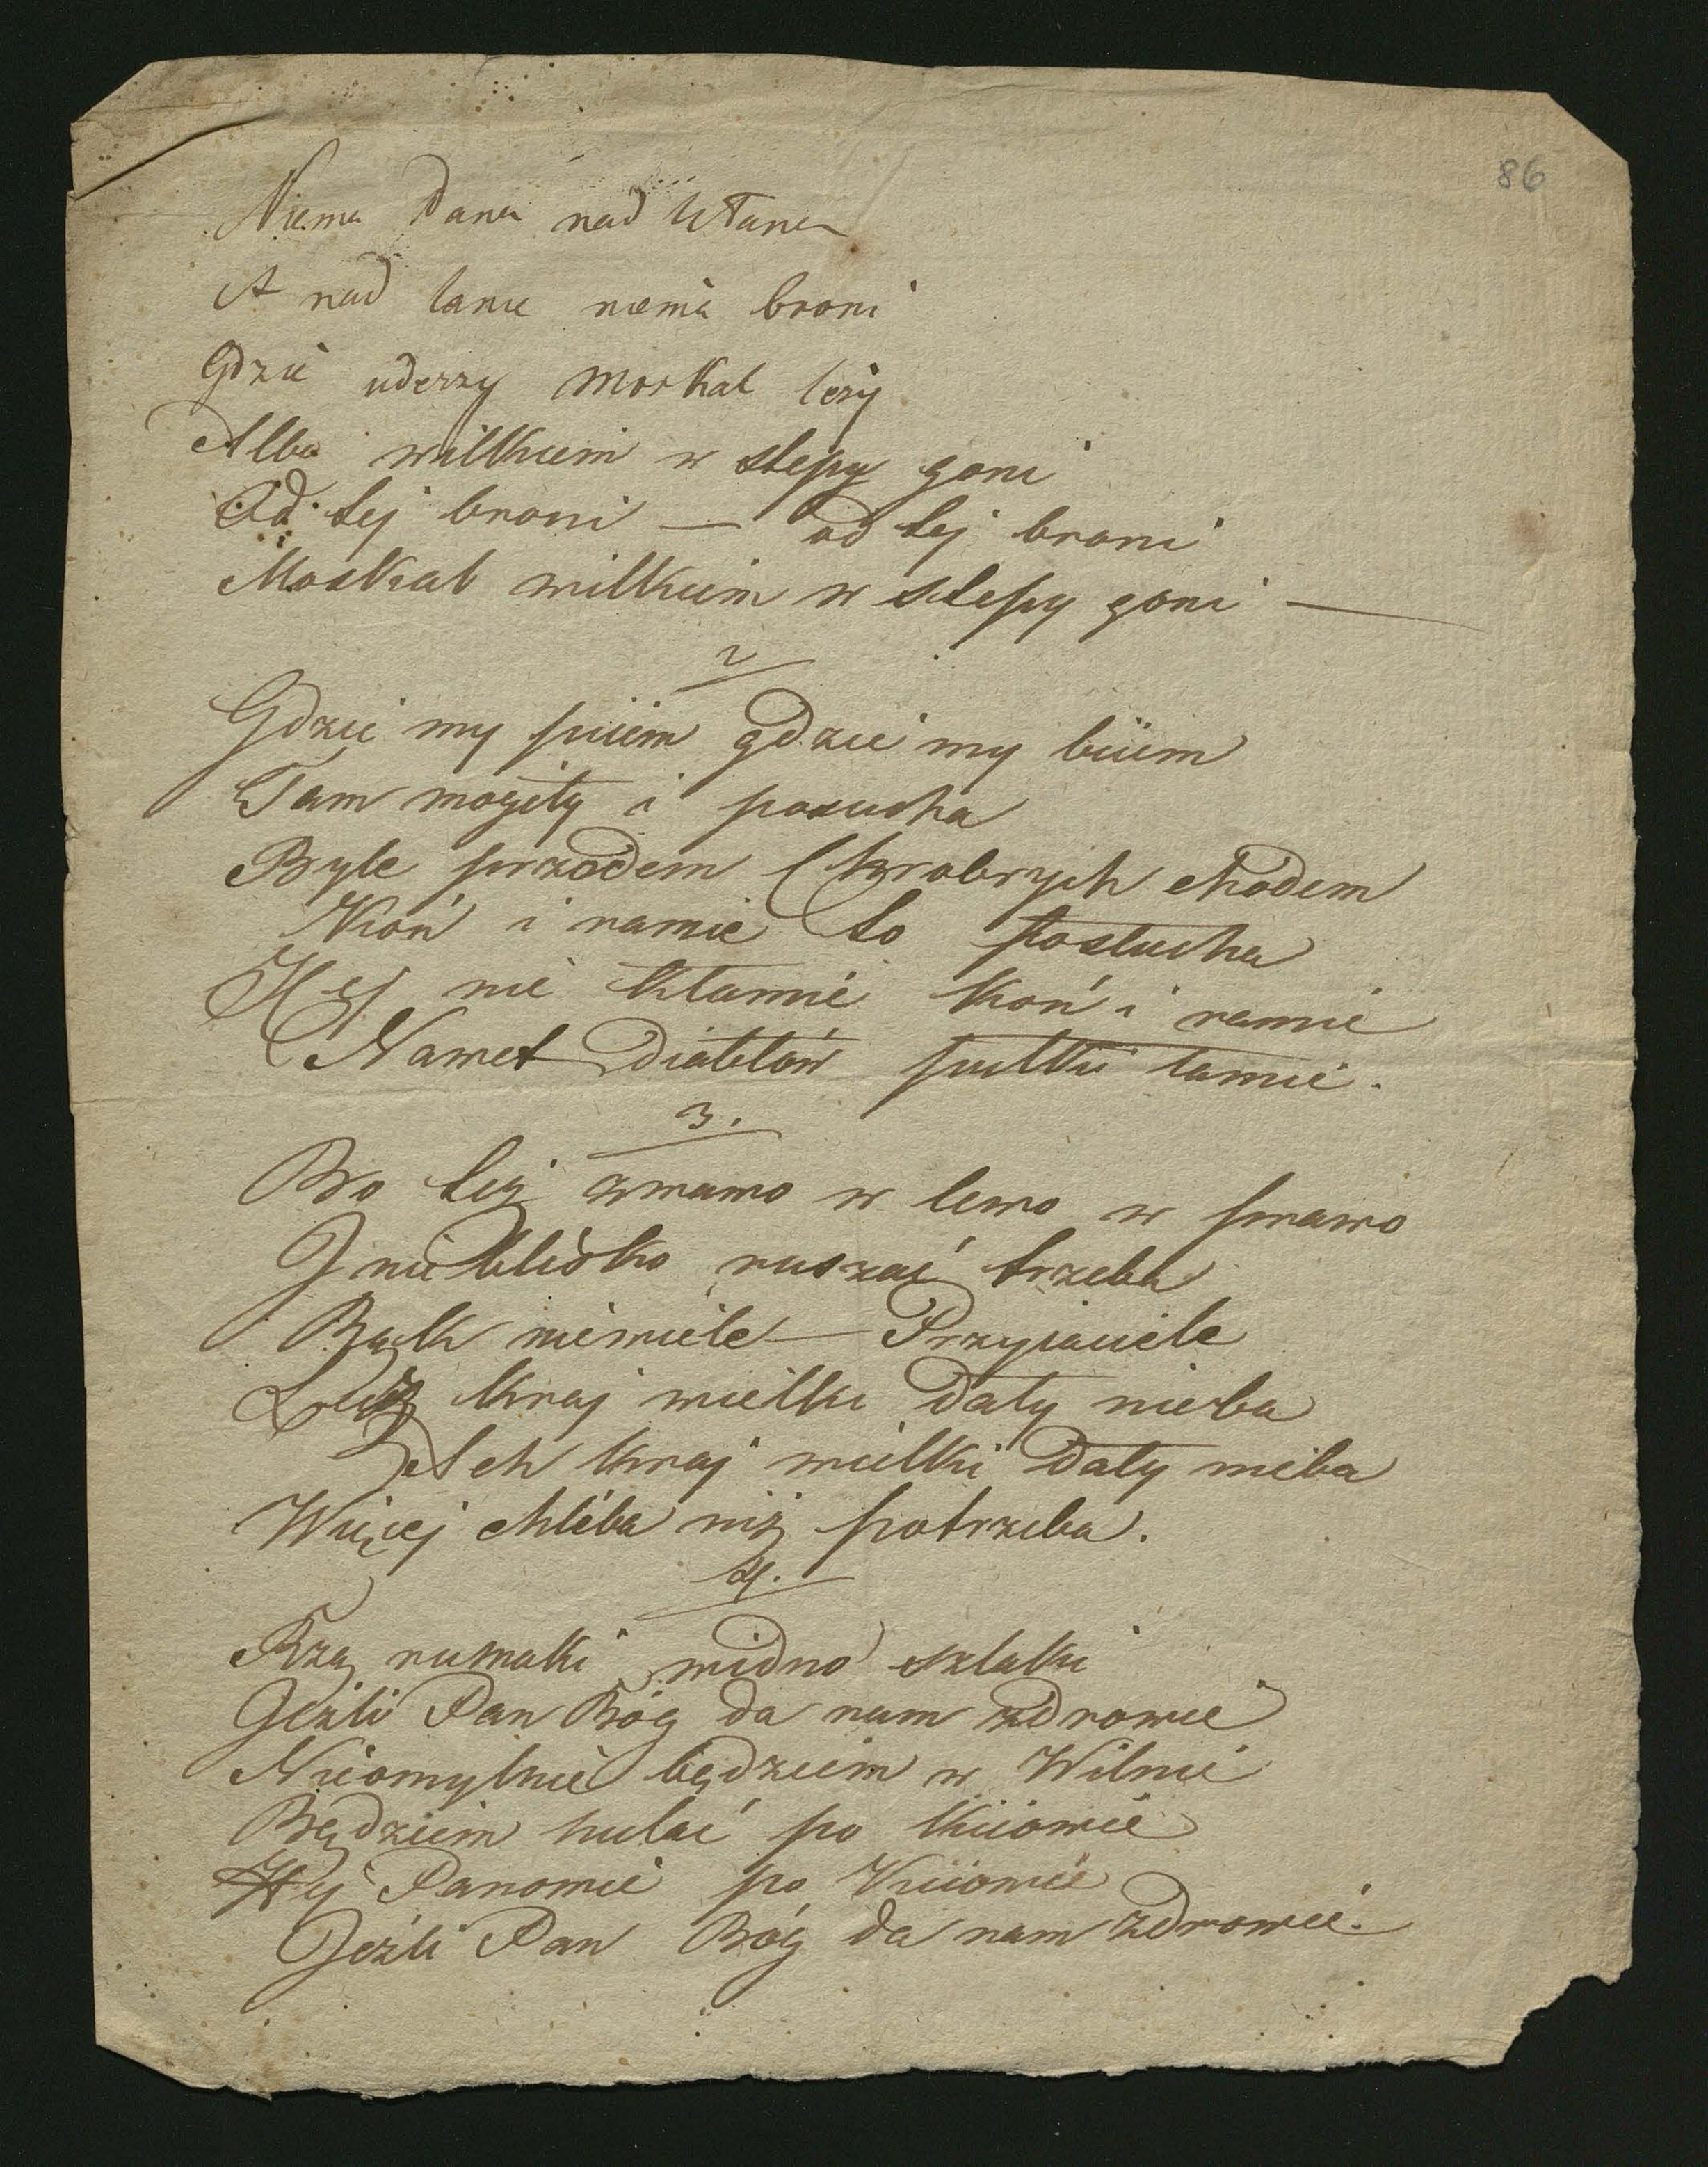 86
Niema Pana nad Ułana
A nad lance niema broni
Gdzie uderzy Moskal leży
Albo wilkiem w stepy goni
Od tej broni — od tej broni
Moskal wilkiem w stepy goni —
2
Gdzie my pijem gdzie my bijem
Tam mogiły i posucha
Byle przodem Chrobrych chodem
Koń i ramie to posłucha
Hej nie kłamie koń i ramie
Nawet Diabłów pułki łamie.
3.
Bo też żwawo w lewo w prawo
I nie kiepsko ruszać trzeba
Bąk niewiele — Przyjaciele
Lecz kraj wielki dały nieba
Ach kraj wielki dały nieba
Więcej chleba niż potrzeba.
4.
Rżą rumaki widno szlaki
Jeżli Pan Bóg da nam zdrowie
Nieomylnie będziem w Wilnie
Będziem hulać po Kijowie
Hej Panowie po Kijowie
Jeżli Pan Bóg da nam zdrowie.